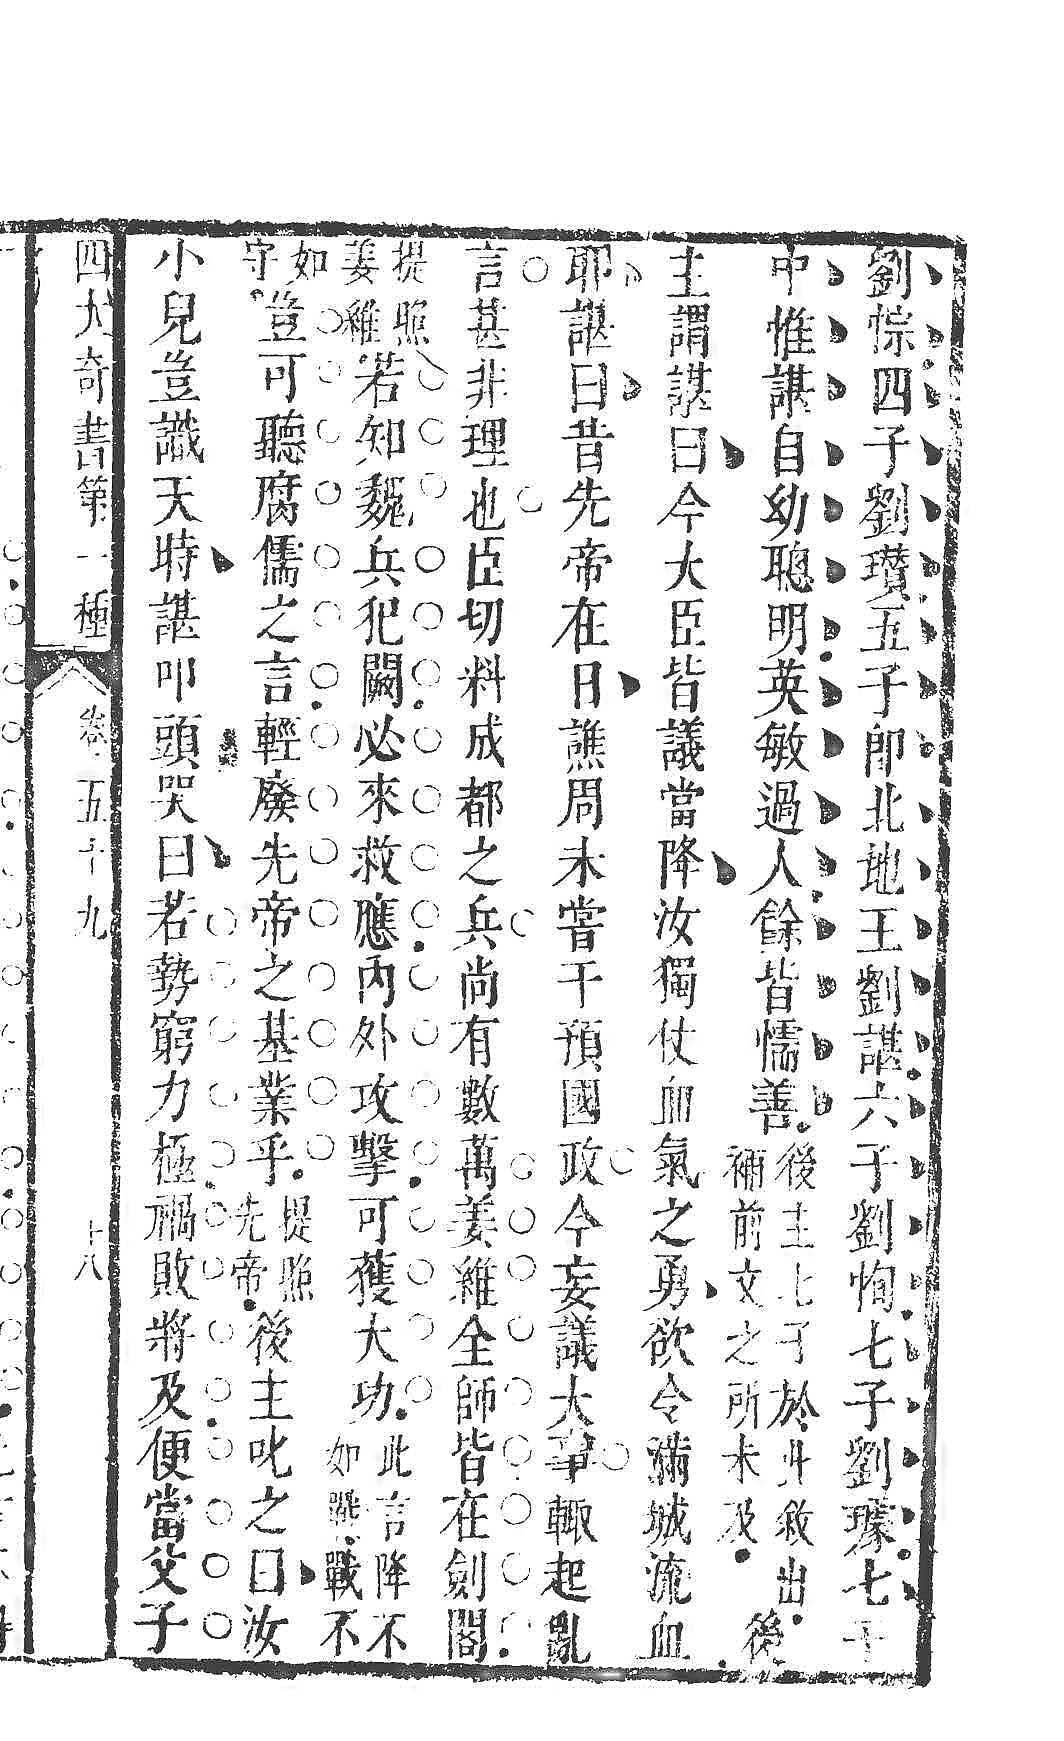 劉悰四子劉瓚五子卽北地王劉諶六子劉恂七子劉璩七子
中惟諶自幼聰明英敏過人餘皆懦善後主七子於此敘出補前文之所未及後
主謂諶曰今大臣皆議當降汝獨仗血氣之勇欲令滿城流血
耶諶曰昔先帝在日譙周未嘗干預國政今妄議大事輙起亂
言甚非理也臣切料成都之兵尚有數萬姜維全師皆在劍閣
提照姜維若知魏兵犯闕必來救應內外攻擊可獲大功此言降不如戰戰不
如守豈可聽腐儒之言輕廢先帝之基業乎提照先帝後主叱之曰汝
小兒豈識天時諶叩頭哭曰若勢窮力極禍敗將及便當父子
四大奇書第一種 卷五十九 十八